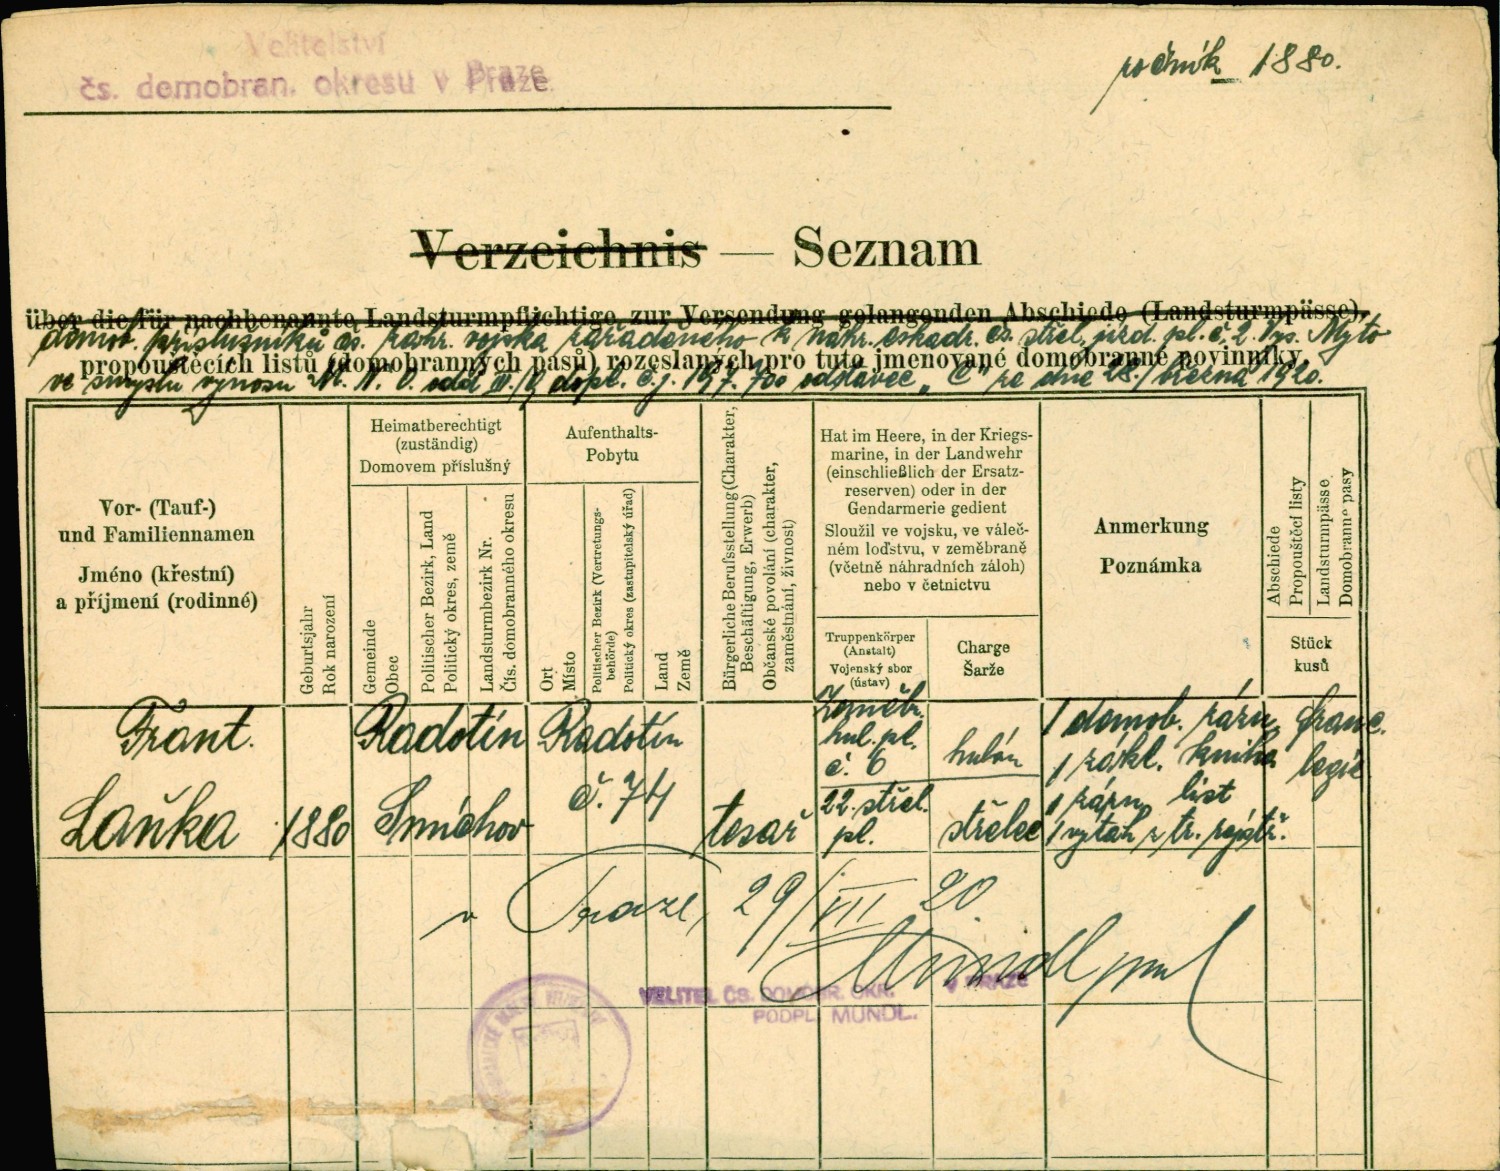 Velitelství
čs. domobran. okresu v Praze
ročník 1880.
Verzeichnis — Seznam
über die für nachbenannte Landsturmpflichtige zur Versendung gelangenden Abschiede (Landsturmpässe),
domov. příslušníků čs. zahr. vojska zařáděného k náhr. eskadr. čs. střel. jízd. pl. č. 2. Vys. Mýto
propoustěcích listů (domobranných pasů) rozeslaných pro tuto jmenované domobranné povinníky.
ve smyslu výnosu M. N. O. odd. dopl. č.j. 197.700 odstavec „C" ze dne 28./března 1920.
Vor- (Tauf-)
und Familiennamen
Jméno (křestní)
a příjmení (rodinné)
Geburtsjahr
Rok narození
Heimatberechtigt
(zuständig)
Domovem příslušný
Gemeinde
Obec
Politischer Bezirk, Land
Politický okres, země
Landsturmbezirk Nr.
Čís. domobranného okresu
Aufenthalts-
Pobytu
Ort
Místo
Politischer Bezirk (Vertretungs-
behörde)
Politický okres (zastupitelský úřad)
Land
Země
Bürgerliche Berufsstellung (Charakter,
Beschäftigung, Erwerb)
Občanské povolání (charakter,
zaměstnání, živnost)
Hat im Heere, in der Kriegs-
marine, in der Landwehr
(einschließlich der Ersatz-
reserven) oder in der
Gendarmerie gedient
Sloužil ve vojsku, ve váleč-
ném loďstvu, v zeměbraně
(včetně náhradních záloh)
nebo v četnictvu
Truppenkörper
(Anstalt)
Vojenský sbor
(ústav)
Charge
Šarže
Anmerkung
Poznámka
Abschiede
Propoustěcí listy
Landsturmpässe
Domobranné pasy
Stück
kusů
Frant.
Laňka
1880
Radotín
Smíchov
Radotín
č. 74
tesař
Zeměbr.
hul. pl.
č. 6
hulán
22. střel.
pl.
střelec
1 domob. zázn.
1 zákl. kniha
1 zázn. list
1 výtah z tr. rejstř.
franc.
legie
v Praze, 29/VII 20
Mündl ppl
VELITEL ČS. DOMOBR. OKR. V PRAZE
PODPL. MÜNDL.